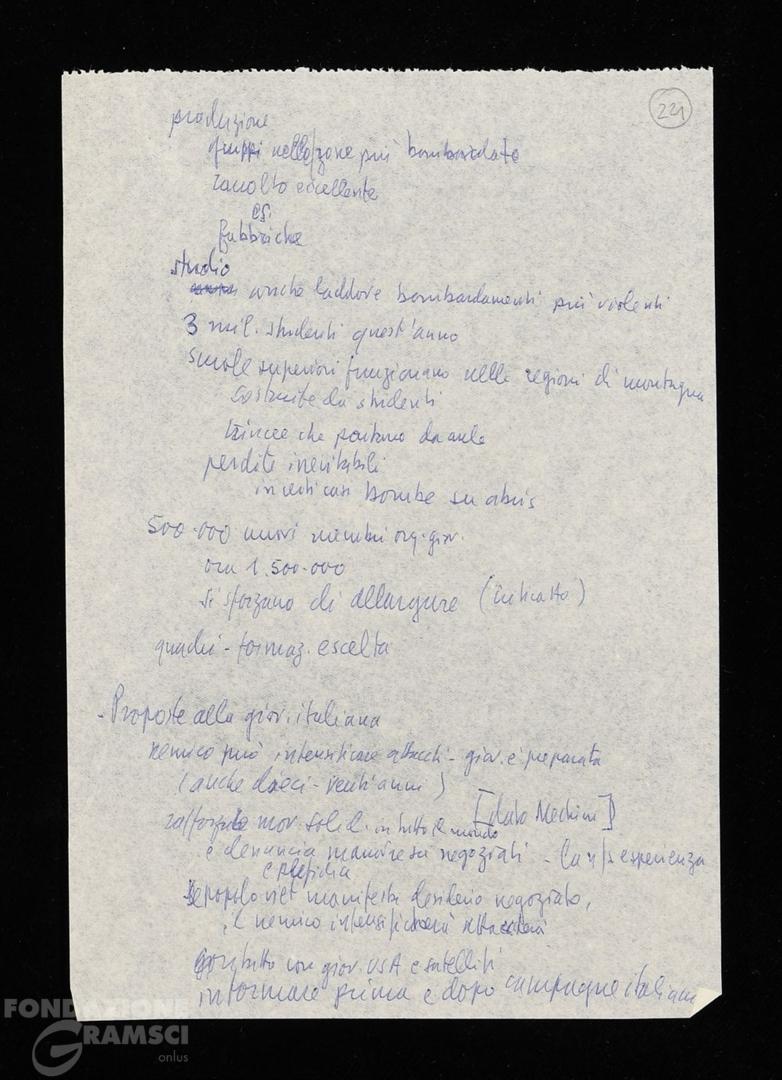 221
produzione
gruppi nelle zone più bombardate
raccolto eccellente
es.
fabbriche
studio
anche laddove bombardamenti più violenti
3 mil. studenti quest'anno
scuole superiori funzionano nelle regioni di montagna
costruite da studenti
trincee che portano da aule
perdite inevitabili
in certi casi bombe su
500.000 nuovi membri org. giov.
ora 1.500.000
si sforzano di allargare
quadri - formaz. e scelta
- Proposte alla giov. italiana
nemico può intensificare attacchi - giov. è preparata
(anche dieci - venti anni)
mov. solid. in tutto il mondo
e denuncia manovre su negoziati - la ns esperienza
e perfidia
se popolo viet manifesta desiderio negoziato,
il nemico intensificherà
con giov. USA e satelliti
informare prima e dopo campagne italiane
FONDAZIONE
GRAMSCI
onlus